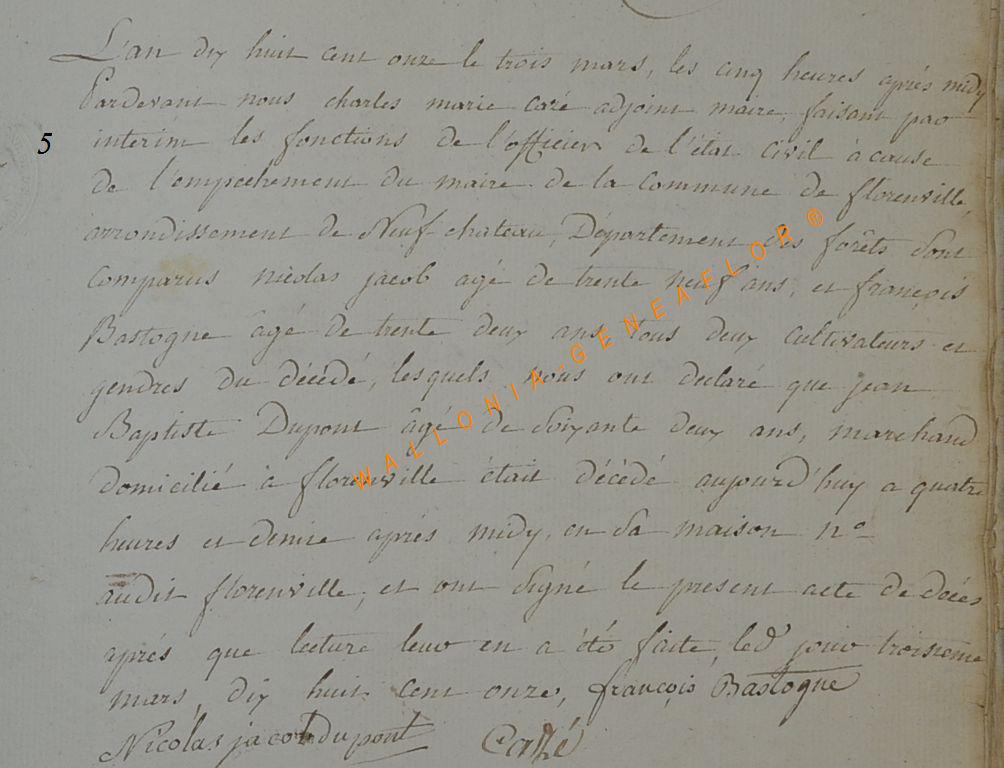 L'an dix huit cent onze le trois mars, les cinq heures après midy
Pardevant nous charles marie caré adjoint maire, faisant par
interim les fonctions de l'officier de l'état civil à cause
5
de l'empechement du maire de la commune de florenville,
arrondissement de Neufchateau, Département des forêts sont
comparus nicolas jacob agé de trente neuf ans, et françois
Bastogne âgé de trente deux ans tous deux cultivateurs et
gendres du décédé, lesquels nous ont declaré que jean
Baptiste Dupont âgé de soixante deux ans, marchand
domicilié à florenville était décédé aujourd'huy a quatre
heures et demie après midy, en sa maison n°
audit florenville, et ont signé le present acte de décés
après que lecture leur en a été faite, led jour troisieme
mars, dix huit cent onze, françois Bastogne
Nicolas jacob dupont
WALLONIA-GENEAFLOR®